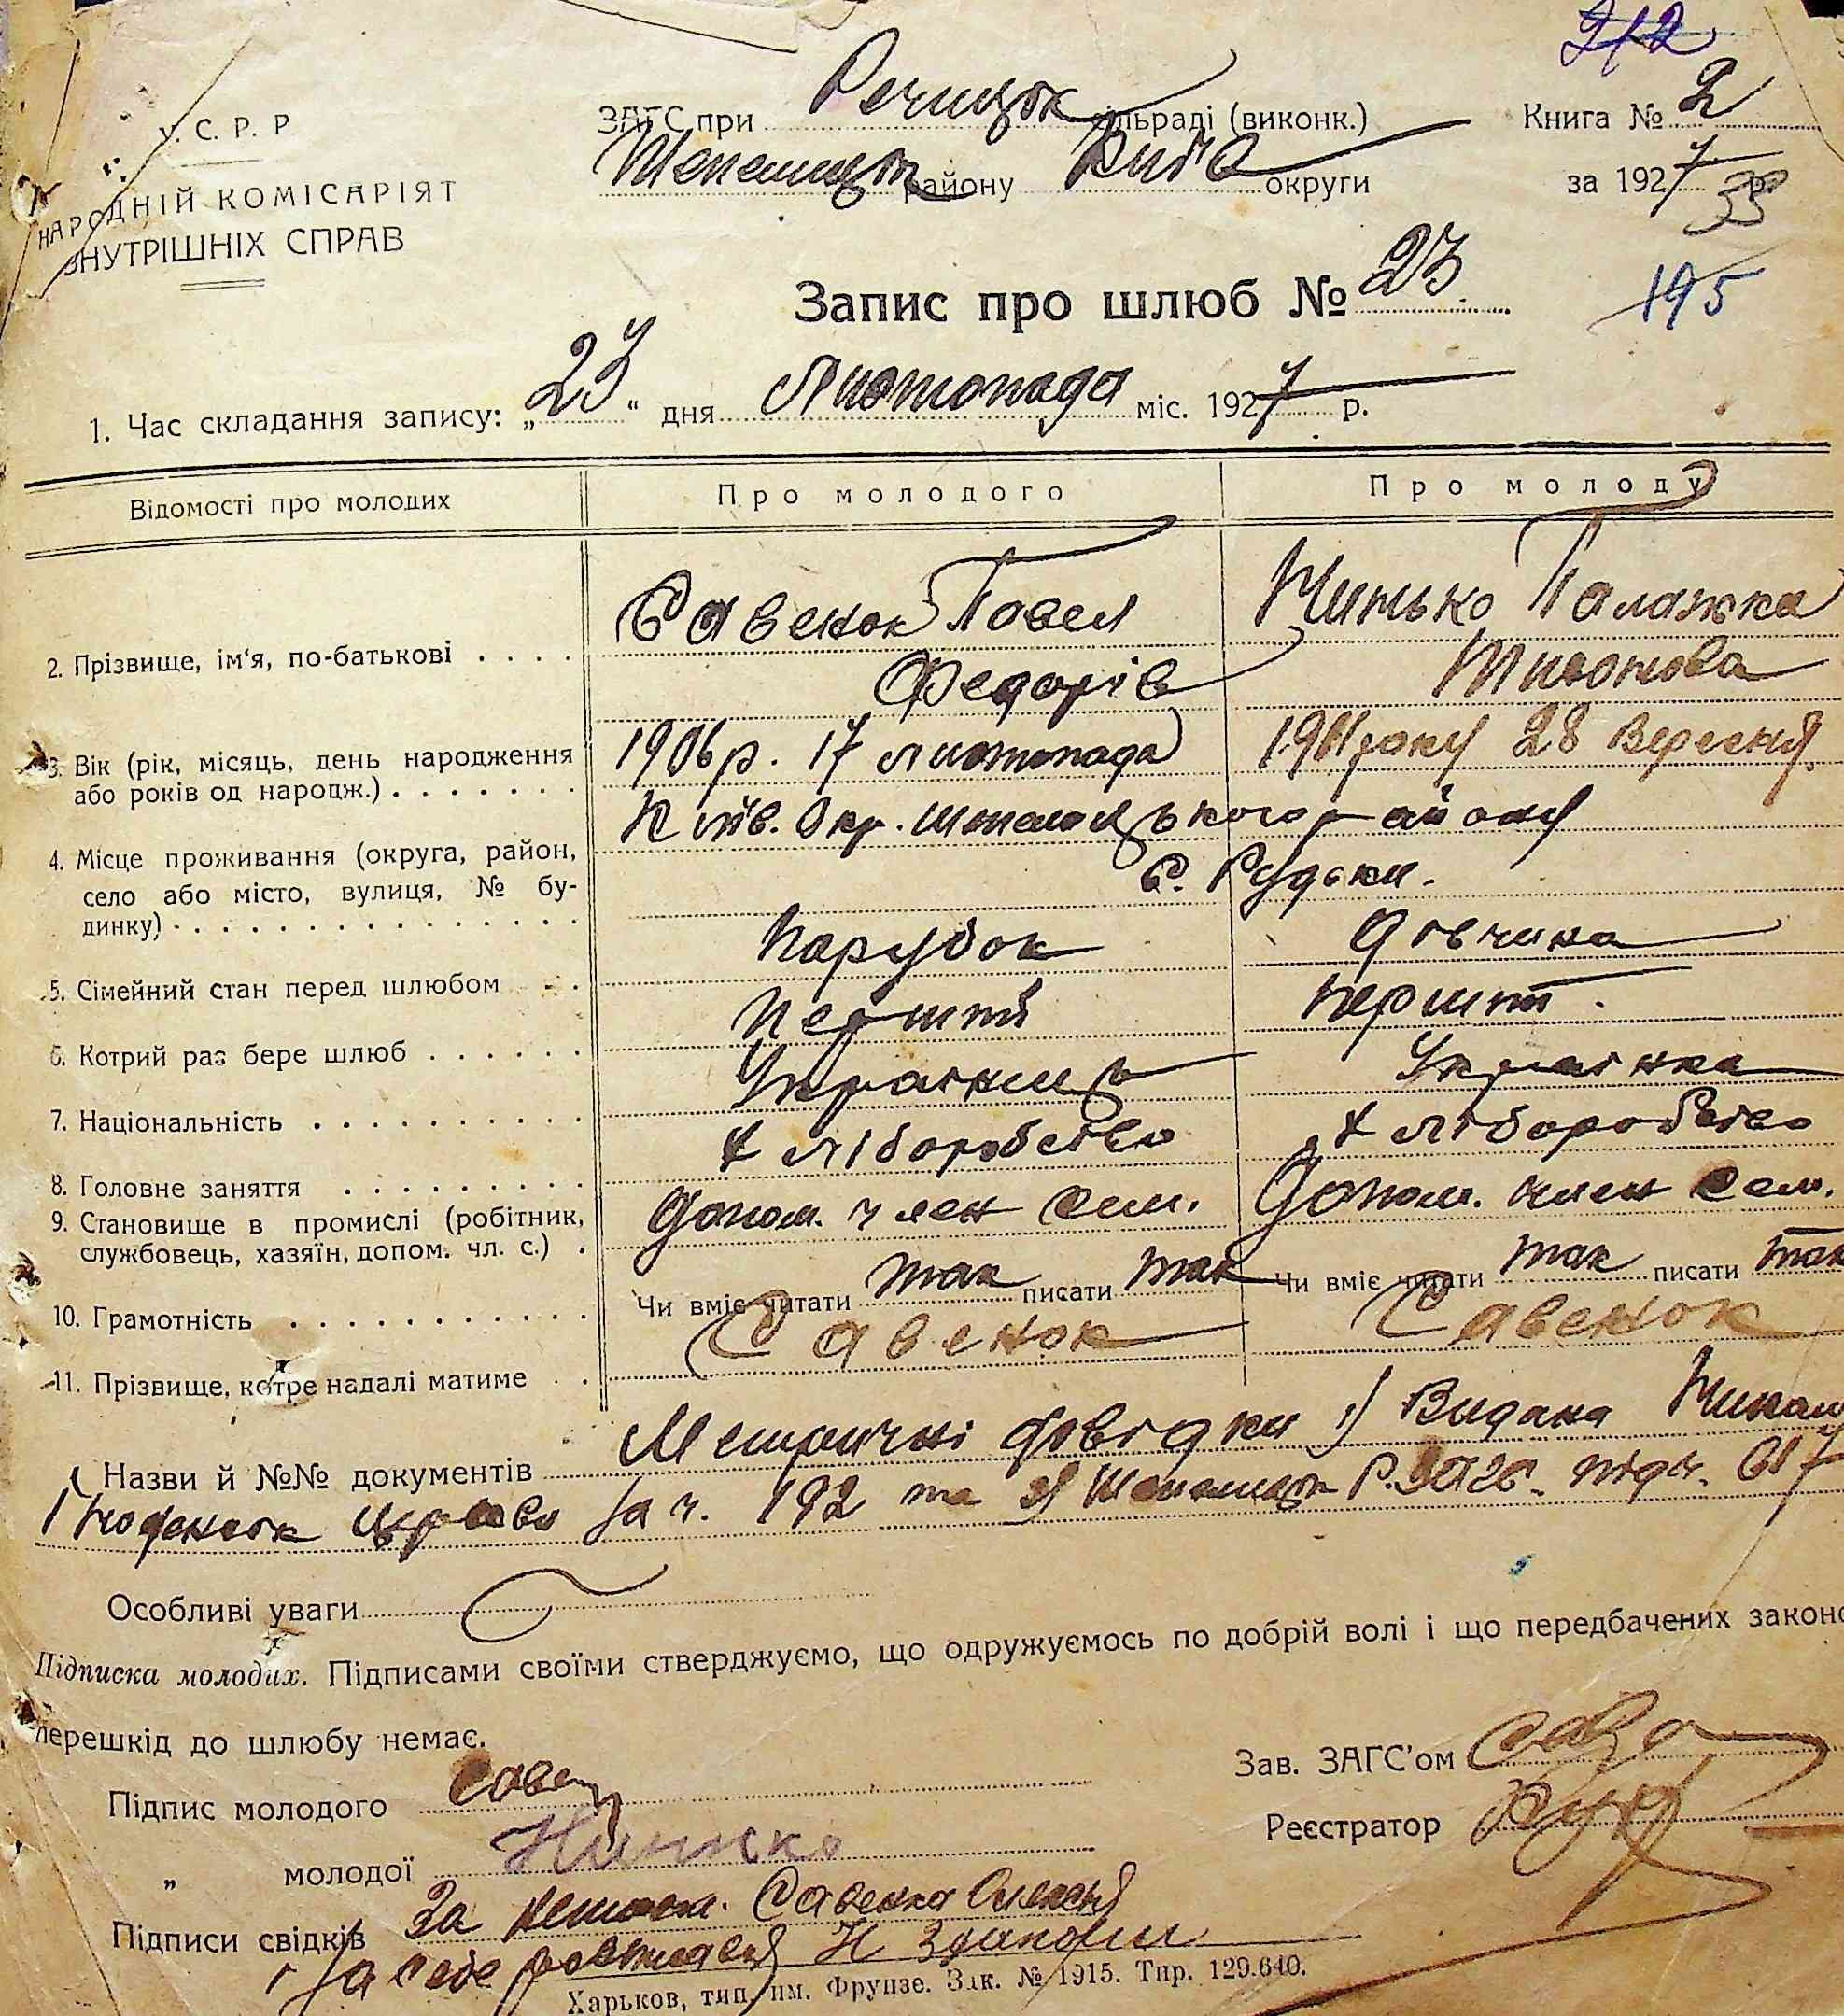 212
У.С.Р.Р
НАРОДНІЙ КОМІСАРІЯТ
ВНУТРІШНІХ СПРАВ
ЗАГС при Речицьк сільраді (виконк.)
району Київ округи
Книга № 2
за 1927 р.
33
Запис про шлюб № 23
195
1. Час складання запису: „23“ дня Листопада міс. 1927 р.
Відомості про молодих Про молодого Про молоду
2. Прізвище, ім'я, по-батькові Савенок Павел Палажка
Федорів
3. Вік (рік, місяць, день народження 1906 р. 17 Листопада 1911 року 28 Вересня
або років од народж.)
4. Місце проживання (округа, район, Київ. Окр. району
село або місто, вулиця, № бу- с. Рудьки.
динку)
5. Сімейний стан перед шлюбом Парубок Дівчина
6. Котрий раз бере шлюб Перший Перший
7. Національність Українець Українка
8. Головне заняття Хліборобство Хліборобство
9. Становище в промислі (робітник, Допом. член сем. Допом. член сем.
службовець, хазяїн, допом. чл. с.)
10. Грамотність Чи вміє читати так писати так Чи вміє читати так писати так
11. Прізвище, котре надалі матиме Савенок Савенок
Назви й №№ документів Метричні довідки 1) Видана
за ч. 192 та 2)
Особливі уваги
Підписка молодих. Підписами своїми стверджуємо, що одружуємось по добрій волі і що передбачених законо
перешкід до шлюбу немає.
Зав. ЗАГС'ом
Підпис молодого Саве
Реєстратор
„ молодої
Підписи свідків За Савенка Олексія
і за себе розписався
Харьков, тип. им. Фрунзе. Зак. № 1915. Тир. 129.640.